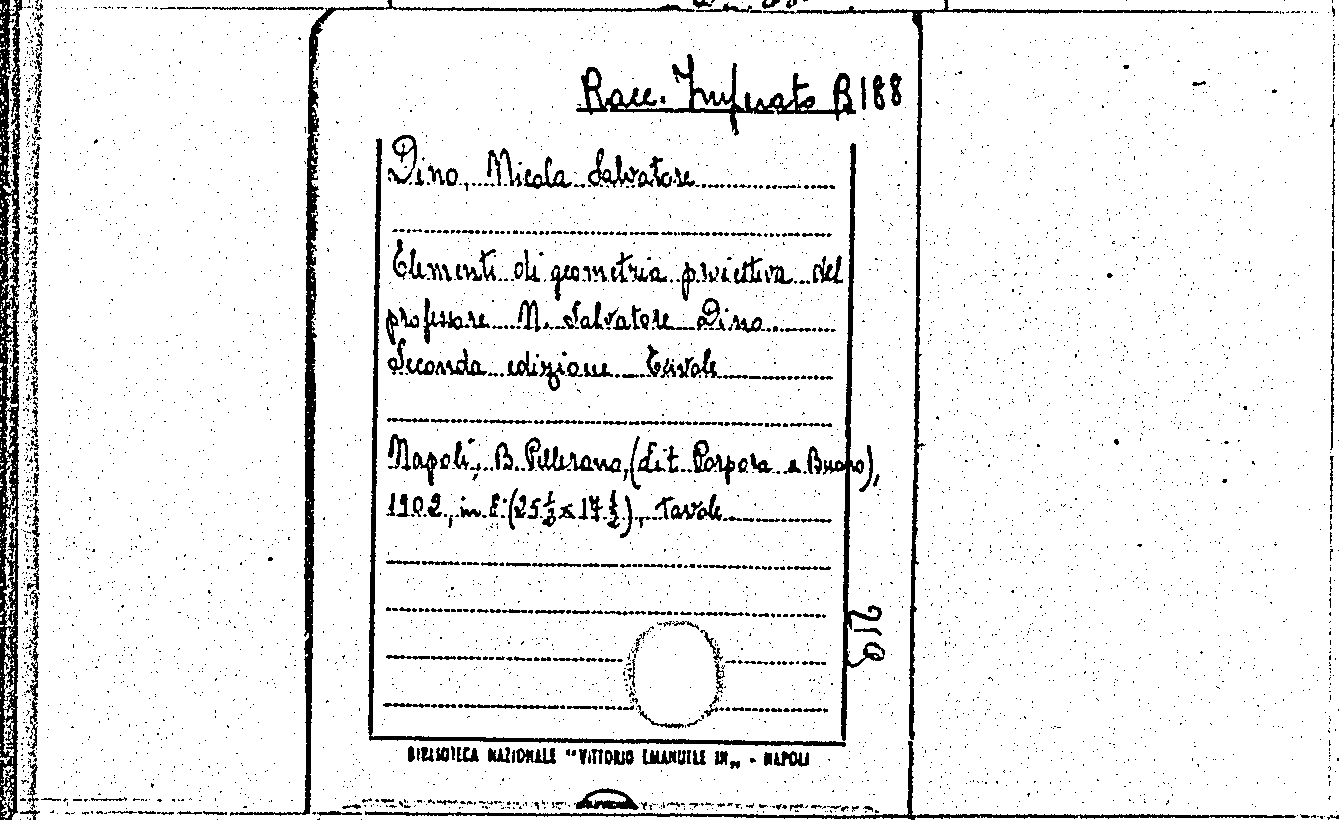 Racc. Imperato B 188
Dino, Nicola Salvatore
Elementi di geometria proiettiva del
professore N. Salvatore Dino
Seconda edizione
Napoli, B. Pellerano, (Lit. Porpora e Buono),
1902, in 8° (25 ½ x 17 ½), Tavole
219
BIBLIOTECA NAZIONALE "VITTORIO EMANUELE III„ - NAPOLI